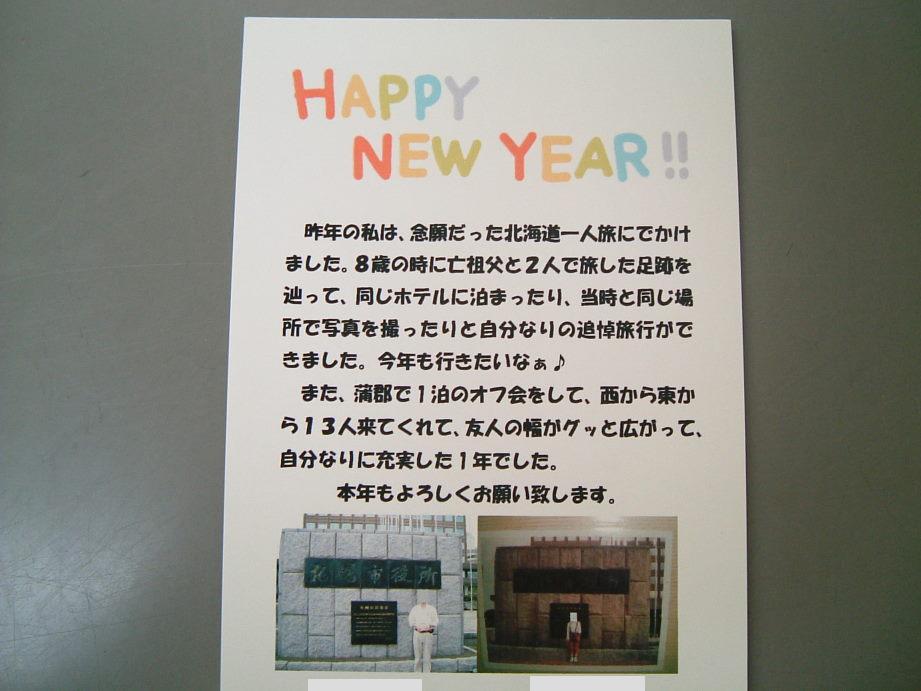 HAPPY
NEW YEAR!!
昨年の私は、念願だった北海道一人旅にでかけ
ました。8歳の時に亡祖父と2人で旅した足跡を
辿って、同じホテルに泊まったり、当時と同じ場
所で写真を撮ったりと自分なりの追悼旅行がで
きました。今年も行きたいなぁ♪
また、蒲郡で1泊のオフ会をして、西から東か
ら13人来てくれて、友人の幅がグッと広がって、
自分なりに充実した1年でした。
本年もよろしくお願い致します。
市役所